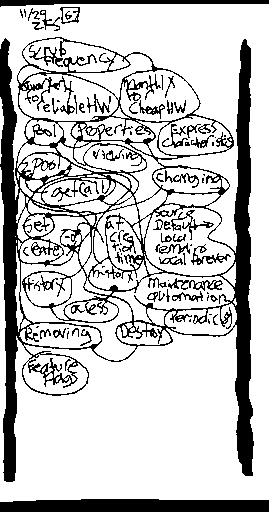 11/29
Scrub
frequency
quarterly
to
reliable HW
Monthly
to
Cheap HW
Pool
Properties
Express
Characteristics
Viewing
zpool
get(all
Changing
Get
Create
at
crea
tion
time
Source
Default→
Local
remains
local forever
History
history
maintenance
automation
access
Periodic(8)
Removing
Destroy
Feature
Flags